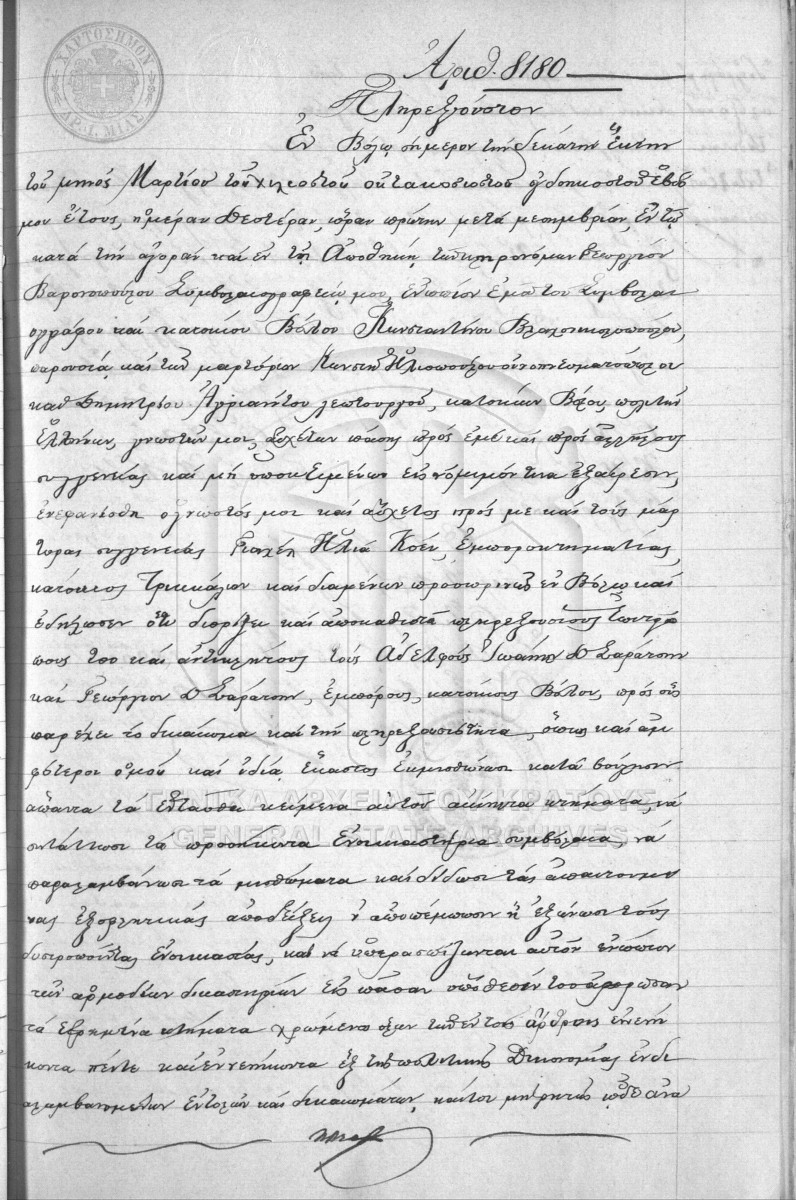 ΧΑΡΤΟΣΗΜΟΝ
ΔΡ. 1. ΜΙΑΣ
Ἀριθ. 8180
Πληρεξούσιον
Ἐν Βόλῳ σήμερον τὴν δεκάτην ἕκτην
τοῦ μηνὸς Μαρτίου τοῦ χιλιοστοῦ ὀκτακοσιοστοῦ ὀγδοηκοστοῦ ἑβδό
μου ἔτους, ἡμέραν Δευτέραν, ὥραν πρώτην μετὰ μεσημβρίαν, ἐν τῷ
κατὰ τὴν ἀγορὰν καὶ ἐν τῇ Ἀποθήκῃ τῶν κληρονόμων Γεωργίου
Συμβολαιογραφείῳ μου, ἐνώπιον ἐμοῦ τοῦ Συμβολαι
ογράφου καὶ κατοίκου Βόλου Κωνσταντίνου
παρουσίᾳ καὶ τῶν μαρτύρων Κωνστ. Ἡλιοπούλου οἰνοπνευματοπώλου
καὶ Δημητρίου λεπτουργοῦ, κατοίκων Βόλου, πολιτῶν
Ἑλλήνων, γνωστῶν μοι, ἀσχέτων πάσης πρὸς ἐμὲ καὶ πρὸς ἀλλήλους
συγγενείας καὶ μὴ ὑποκειμένων εἰς νόμιμόν τινα ἐξαίρεσιν,
ἐνεφανίσθη ὁ γνωστός μοι καὶ ἄσχετος πρός με καὶ τοὺς μάρ
τυρας συγγενείας Ἡλιᾶ Κοέν, Ἐμποροκτηματίας,
κάτοικος Τρικκάλων καὶ διαμένων προσωρινῶς ἐν Βόλῳ καὶ
ἐδήλωσεν ὅτι διορίζει καὶ ἀποκαθιστᾷ πληρεξουσίους ἐπιτρό
πους του καὶ ἀντικλήτους τοὺς Ἀδελφοὺς Ἰωάννην Δ Σαράτσην
καὶ Γεώργιον Δ Σαράτσην, ἐμπόρους, κατοίκους Βόλου, πρὸς οὓς
παρέχει τὸ δικαίωμα καὶ τὴν πληρεξουσιότητα, ὅπως καὶ ἀμ
φότεροι ὁμοῦ καὶ ἰδίᾳ ἕκαστος ἐκμισθώνωσι κατὰ βούλησιν
ἅπαντα τὰ ἐνταῦθα κείμενα αὐτοῦ ἀκίνητα κτήματα, νὰ
συντάττωσι τὰ προσήκοντα ἐνοικιαστήρια συμβόλαια, νὰ
παραλαμβάνωσι τὰ μισθώματα καὶ δίδωσι τὰς ἀπαιτουμέ
νας ἐξοφλητικὰς ἀποδείξεις ἢ ἀποπέμπωσιν ἢ ἐξώνωσι τοὺς
δυστροποῦντας ἐνοικιαστάς, καὶ νὰ ὑπερασπίζωνται αὐτὸν ἐνώπιον
τῶν ἁρμοδίων δικαστηρίων εἰς πᾶσαν ὑπόθεσίν του ἀφορῶσαν
τὰ εἰρημένα κτήματα χρώμενοι τοῖς ἄρθροις ἐνενή
κοντα πέντε καὶ ἐννενήκοντα ἓξ τῆς πολιτικῆς Δικονομίας ἐνδι
αλαμβανομένων ἐντολῶν καὶ δικαιωμάτων, καίτοι μὴ ῥητῶς ὧδε ἀνα
ΓΕΝΙΚΑ ΑΡΧΕΙΑ ΤΟΥ ΚΡΑΤΟΥΣ
GENERAL STATE ARCHIVES